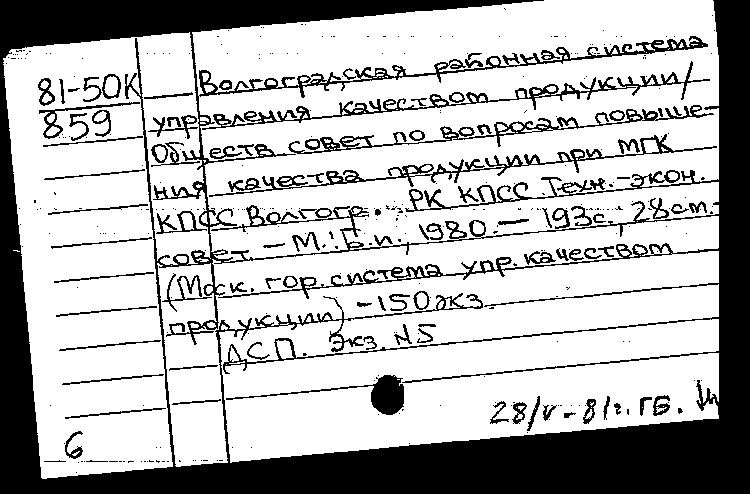 81-50К
859
Волгоградская районная система
управления качеством продукции/
Обществ совет по вопросам повыше-
ния качества продукции при МГК
КПСС, Волгогр. РК КПСС. Техн.-экон.
совет. — М.: Б.и., 1980. — 193с.; 28см.-
(Моск. гор. система упр. качеством
продукции) -150экз.
ДСП. Экз. №5
28/V-81г. ГБ.
6